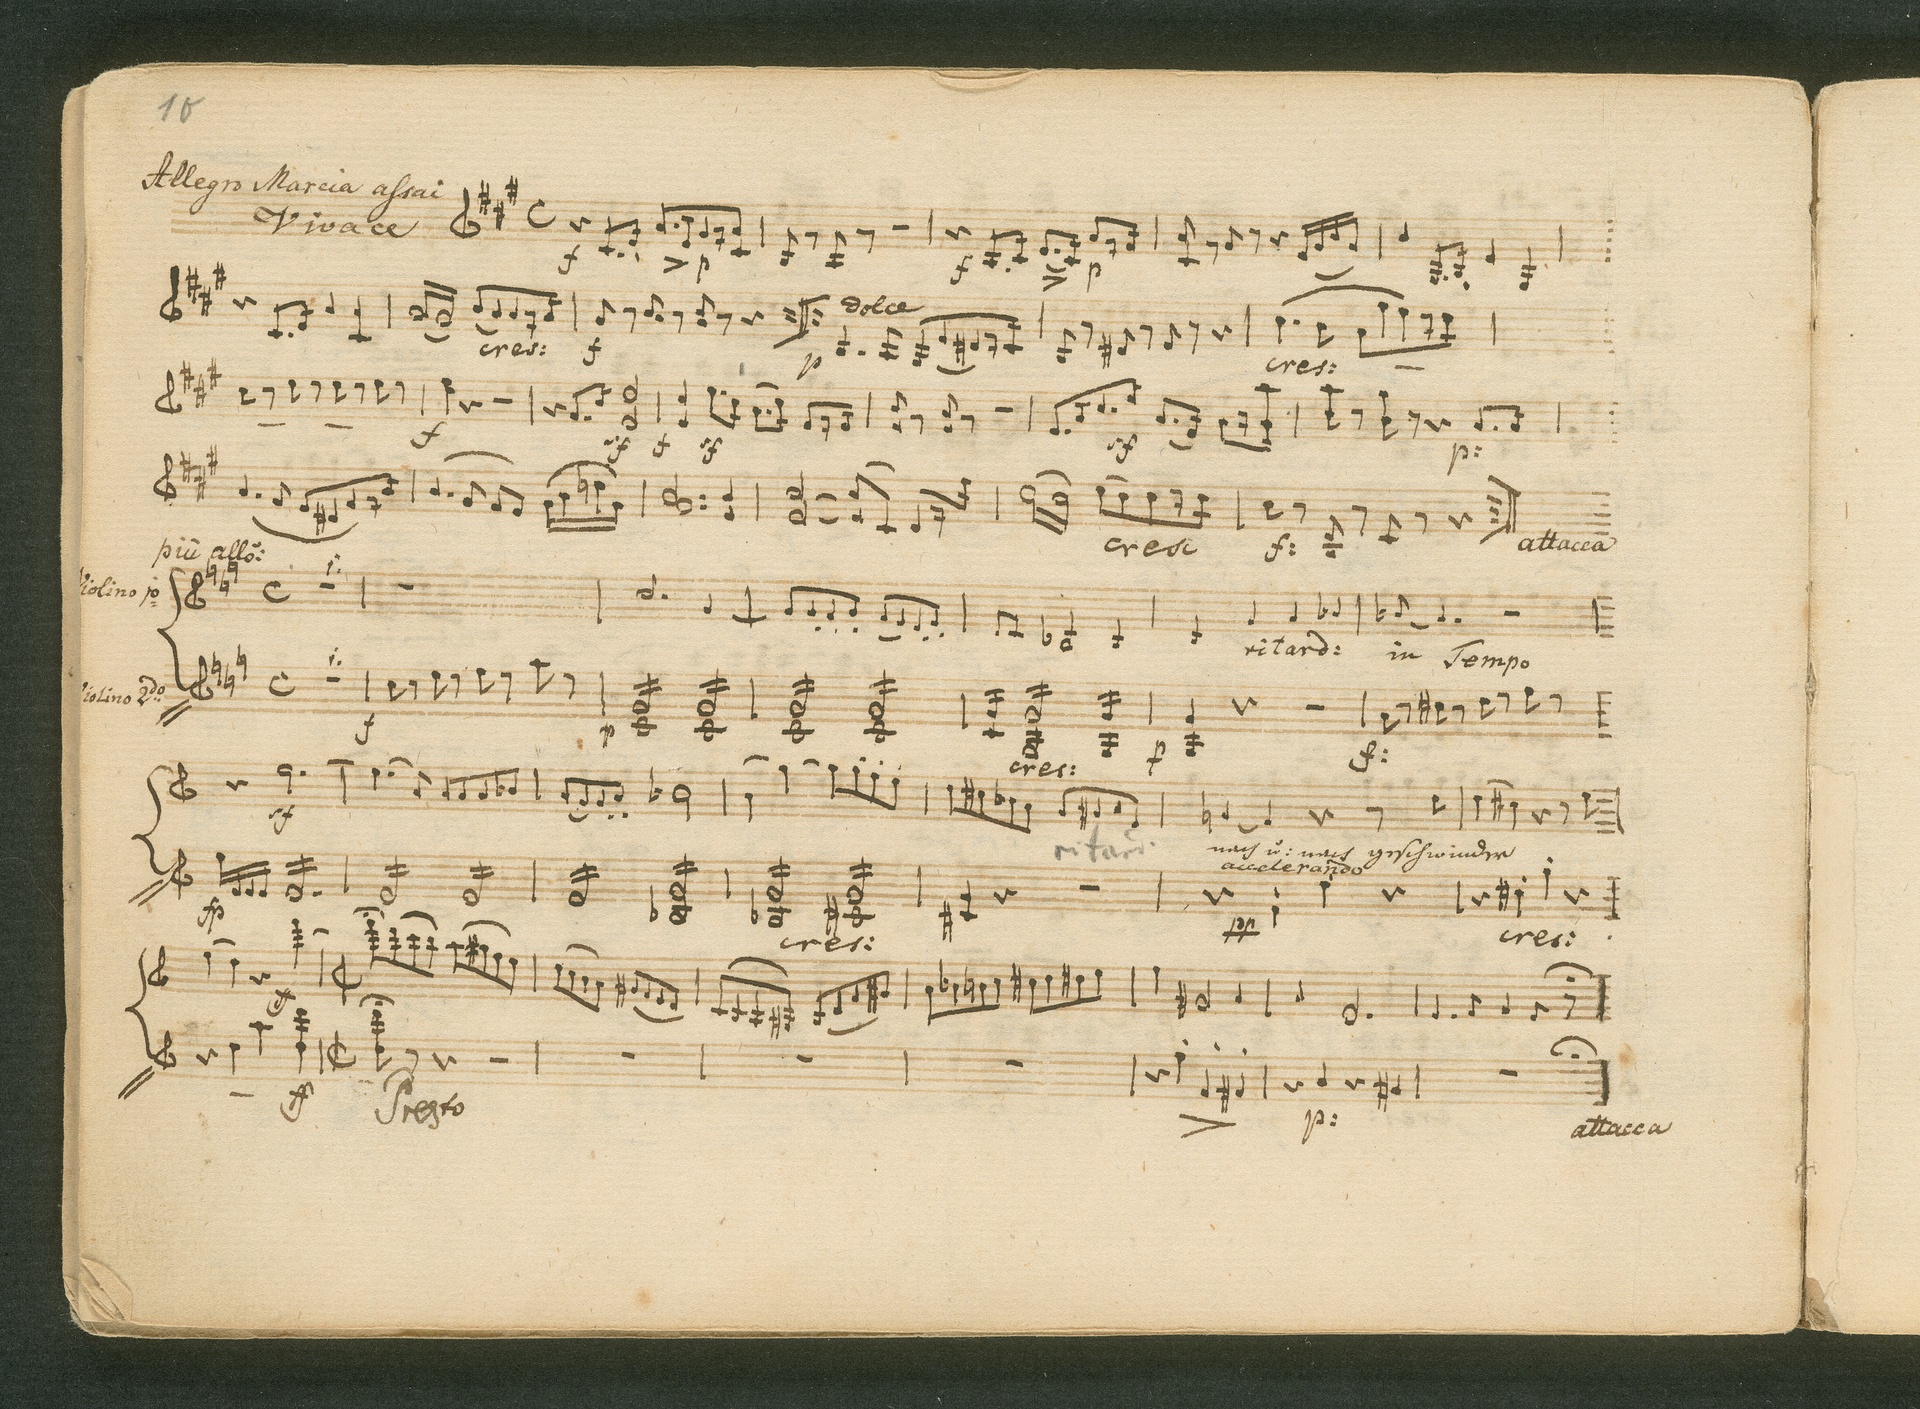 10
Allegro Marcia assai
Vivace
f p f p
dolce
cres: f p cres:
f sf f sf sf p:
cresc f: attacca
più allo:
Violino po
ritard: in Tempo
Violino 2do
f p cres: p f:
sf ritard:
nach u: nach geschwinder
accelerando
fp cres: pp cres:
ff
ff Presto p:
attacca